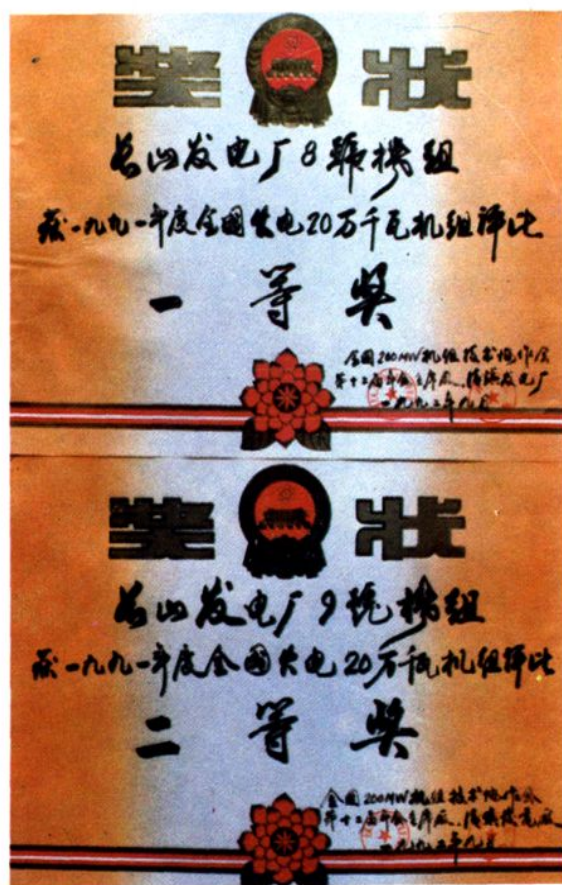 奖状
长山发电厂8號机组
获一九九一年度全国火电20万千瓦机组评比
一等奖
全国200MW机组技术协作会
第十二届年会主席厂、清镇发电厂
一九九二年九月
奖状
长山发电厂9號机组
获一九九一年度全国火电20万千瓦机组评比
二等奖
全国200MW机组技术协作会
第十二届年会主席厂、清镇发电厂
一九九二年九月